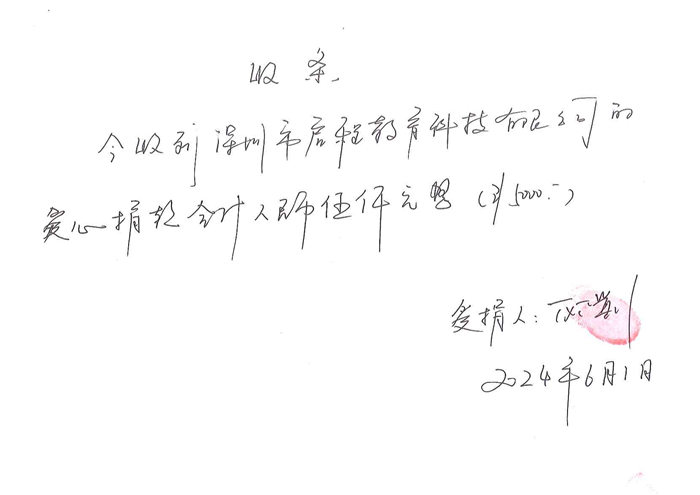 收条
今收到深圳市启程教育科技有限公司的
爱心捐款合计人民币伍仟元整 (￥5000.-)
受捐人：
2024年6月1日